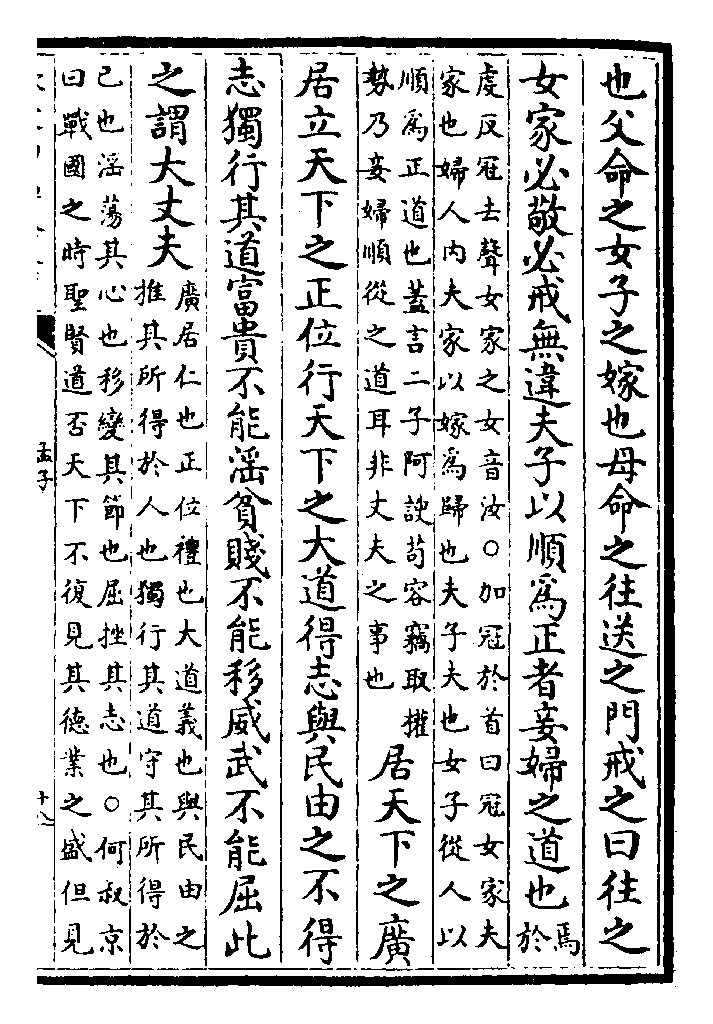 也父命之女子之嫁也母命之往送之門戒之曰往之
女家必敬必戒無違夫子以順爲正者妾婦之道也
焉
於
虔反冠去聲女家之女音汝○加冠於首曰冠女家夫
家也婦人内夫家以嫁爲歸也夫子夫也女子從人以
順爲正道也蓋言二子阿諛苟容竊取權
勢乃妾婦順從之道耳非丈夫之事也
居天下之廣
居立天下之正位行天下之大道得志與民由之不得
志獨行其道富貴不能滛貧賤不能移威武不能屈此
之謂大丈夫
廣居仁也正位禮也大道義也與民由之
推其所得於人也獨行其道守其所得於
己也滛蕩其心也移變其節也屈挫其志也○何叔京
曰戰國之時聖賢道否天下不復見其德業之盛但見
孟子
十八